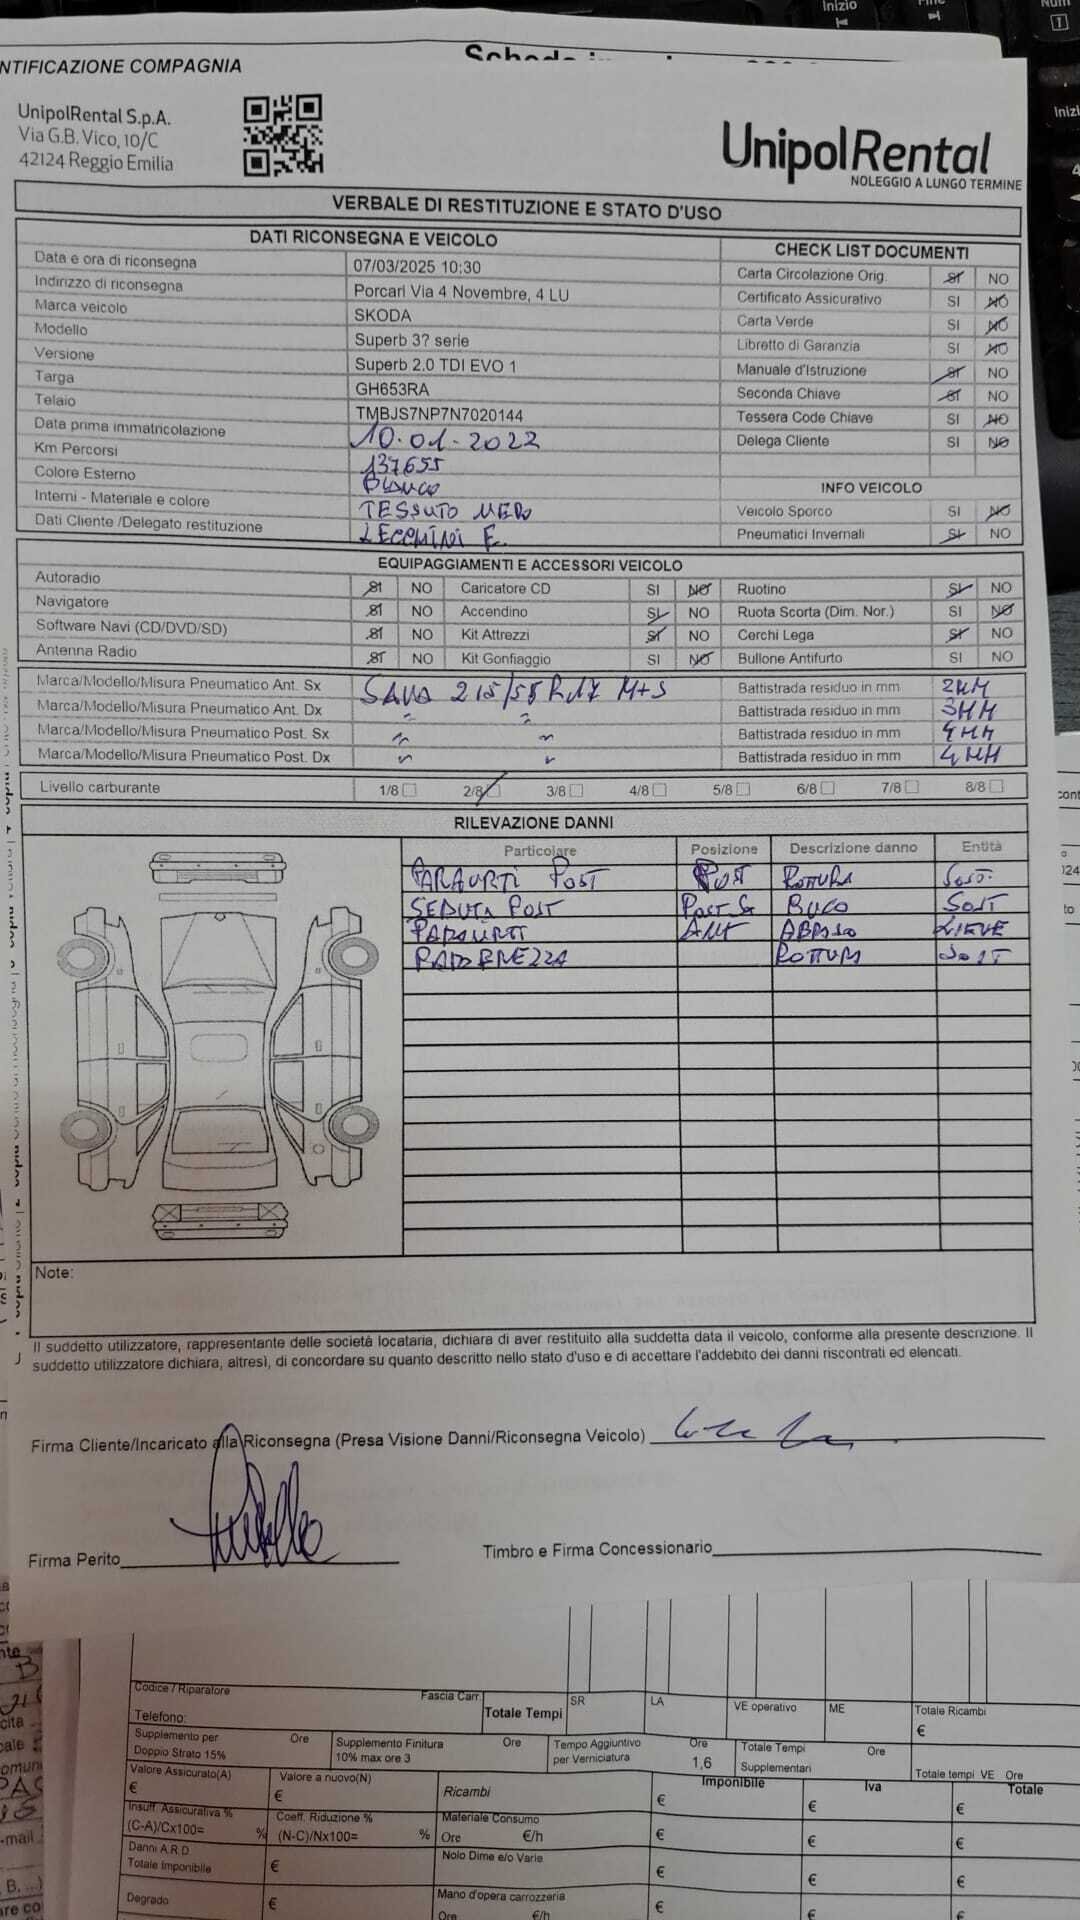 Inizio
Fine
Num
1
NTIFICAZIONE COMPAGNIA
UnipolRental S.p.A.
Via G.B. Vico, 10/C
42124 Reggio Emilia
UnipolRental
NOLEGGIO A LUNGO TERMINE
VERBALE DI RESTITUZIONE E STATO D'USO
DATI RICONSEGNA E VEICOLO
CHECK LIST DOCUMENTI
Data e ora di riconsegna 07/03/2025 10:30 Carta Circolazione Orig. SI NO
Indirizzo di riconsegna Porcari Via 4 Novembre, 4 LU Certificato Assicurativo SI NO
Marca veicolo SKODA Carta Verde SI NO
Modello Superb 3? serie Libretto di Garanzia SI NO
Versione Superb 2.0 TDI EVO 1 Manuale d'Istruzione SI NO
Targa GH653RA Seconda Chiave SI NO
Telaio TMBJS7NP7N7020144 Tessera Code Chiave SI NO
Data prima immatricolazione 10-01-2022 Delega Cliente SI NO
Km Percorsi 137655
Colore Esterno BIANCO INFO VEICOLO
Interni - Materiale e colore TESSUTO NERO Veicolo Sporco SI NO
Dati Cliente /Delegato restituzione LECCHINI F. Pneumatici Invernali SI NO
EQUIPAGGIAMENTI E ACCESSORI VEICOLO
Autoradio SI NO Caricatore CD SI NO Ruotino SI NO
Navigatore SI NO Accendino SI NO Ruota Scorta (Dim. Nor.) SI NO
Software Navi (CD/DVD/SD) SI NO Kit Attrezzi SI NO Cerchi Lega SI NO
Antenna Radio SI NO Kit Gonfiaggio SI NO Bullone Antifurto SI NO
Marca/Modello/Misura Pneumatico Ant. Sx SAVA 215/55 R17 M+S Battistrada residuo in mm 2MM
Marca/Modello/Misura Pneumatico Ant. Dx " " Battistrada residuo in mm 3MM
Marca/Modello/Misura Pneumatico Post. Sx " " Battistrada residuo in mm 4MM
Marca/Modello/Misura Pneumatico Post. Dx " " Battistrada residuo in mm 4MM
Livello carburante 1/8 2/8 3/8 4/8 5/8 6/8 7/8 8/8
RILEVAZIONE DANNI
Particolare Posizione Descrizione danno Entità
PARAURTI POST POST ROTTURA SOST.
SEDUTA POST POST SX BUCO SOST
PARAURTI ANT ABRASO LIEVE
ROTTURA SOST
Note:
Il suddetto utilizzatore, rappresentante delle società locataria, dichiara di aver restituito alla suddetta data il veicolo, conforme alla presente descrizione. Il
suddetto utilizzatore dichiara, altresì, di concordare su quanto descritto nello stato d'uso e di accettare l'addebito dei danni riscontrati ed elencati.
Firma Cliente/Incaricato alla Riconsegna (Presa Visione Danni/Riconsegna Veicolo)
Firma Perito
Timbro e Firma Concessionario
Codice / Riparatore Fascia Carr. Totale Tempi SR LA VE operativo ME Totale Ricambi
Telefono: €
Supplemento per Ore Supplemento Finitura Ore Tempo Aggiuntivo Ore Totale Tempi Ore
Doppio Strato 15% 10% max ore 3 per Verniciatura 1,6 Supplementari Totale tempi VE Ore
Valore Assicurato(A) Valore a nuovo(N) Ricambi Imponibile Iva Totale
€ € € € €
Insuff. Assicurativa % Coeff. Riduzione % Materiale Consumo
(C-A)/Cx100= % (N-C)/Nx100= % Ore €/h € € €
Danni A.R.D Nolo Dime e/o Varie
Totale Imponibile € € € €
Degrado € Mano d'opera carrozzeria
Ore €/h € € €